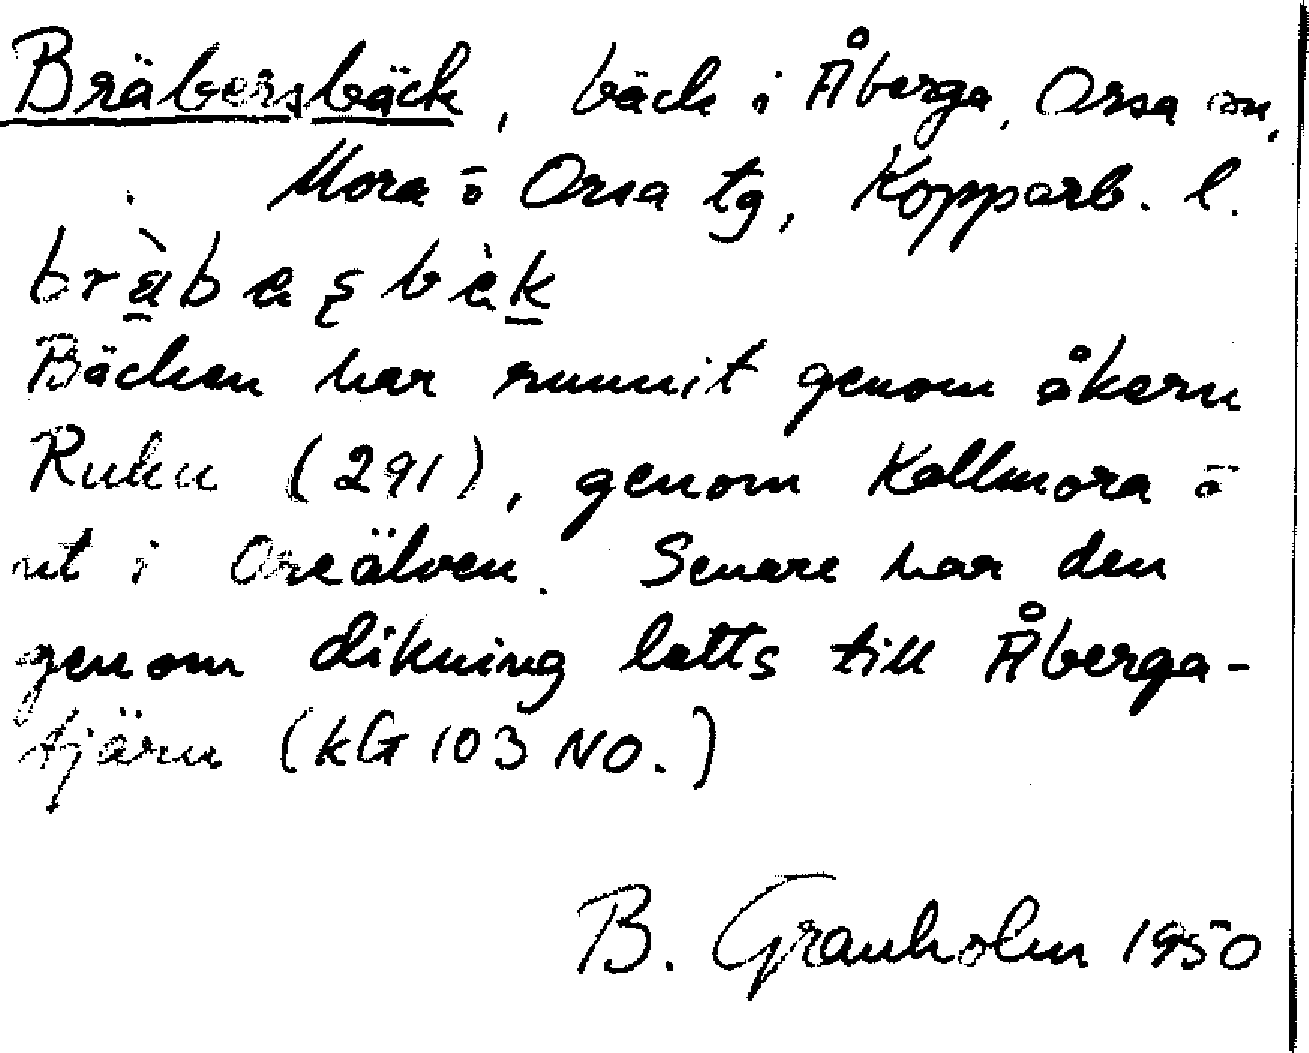 Bräbersbäck, bäck i Åberga, Orsa sn,
Mora o Orsa tg, Kopparb. l.
Bäcken har runnit genom åkern
Ruku (291), genom Kallmora o
ut i Oreälven. Senare har den
genom dikning letts till Åberga-
tjärn (KG 103 NO.)
B. Granholm 1950